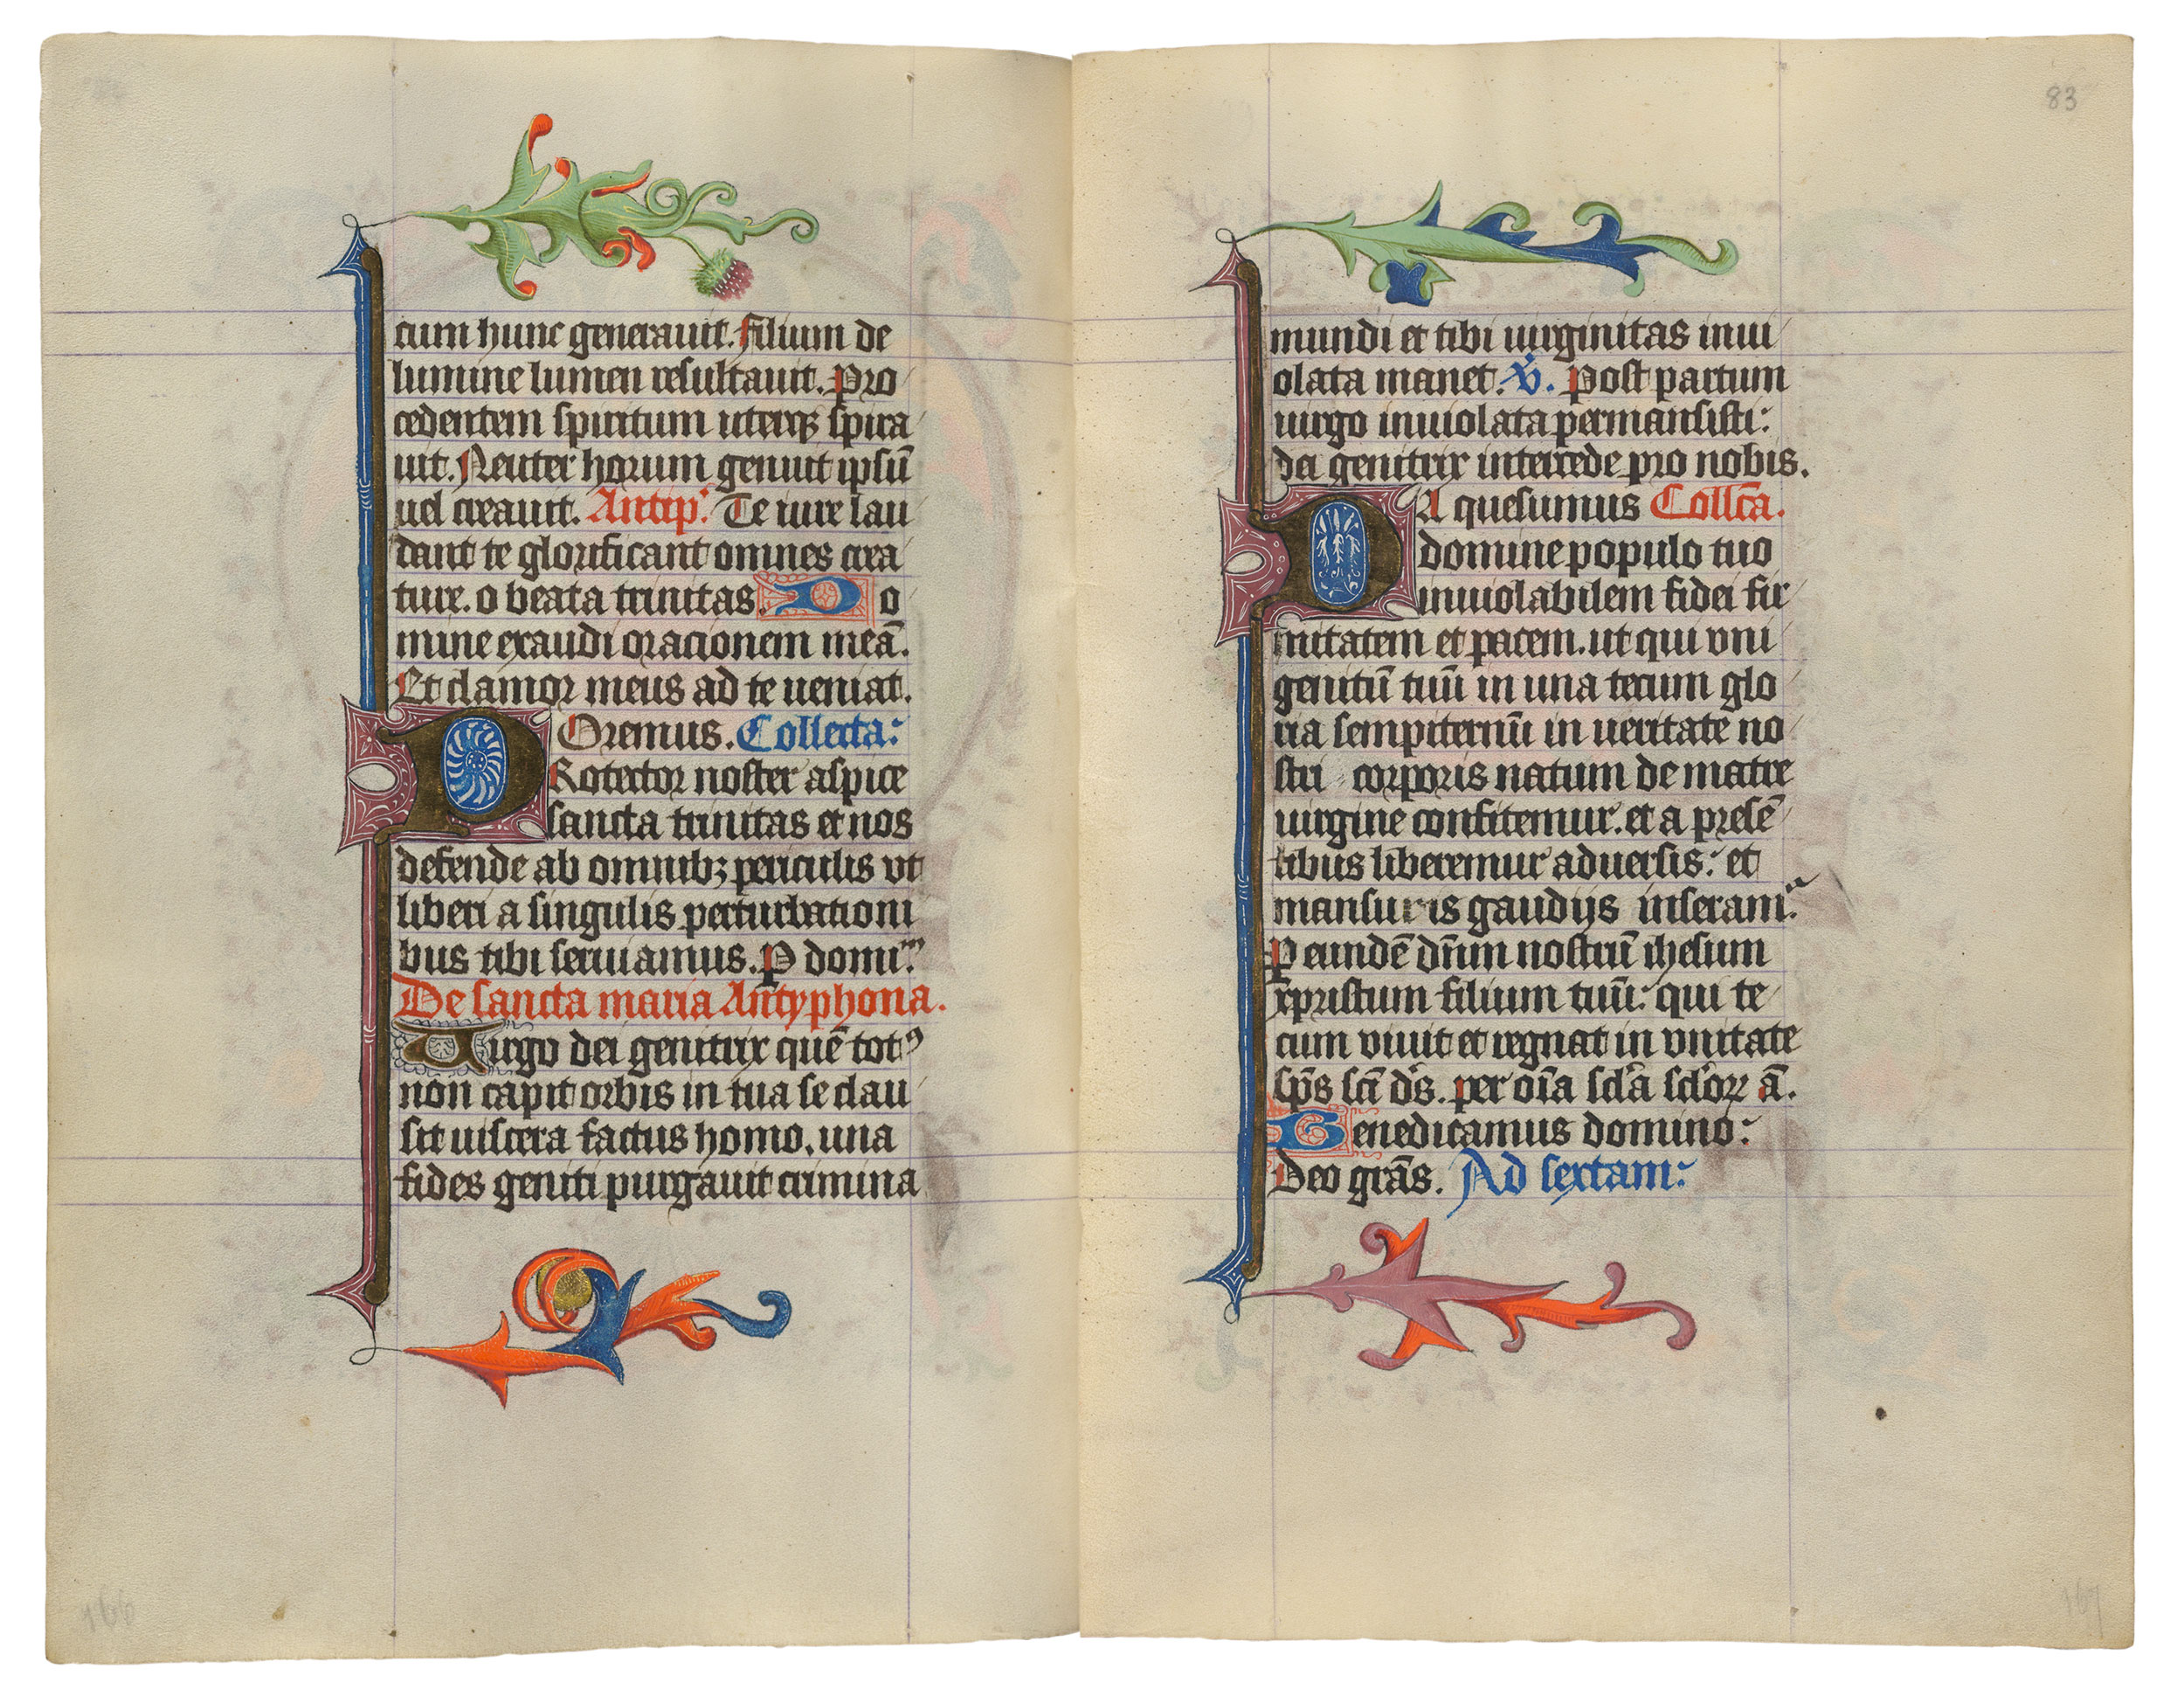 cum hunc generauit. Filium de
lumine lumen resultauit. Pro
cedentem spiritum uterqꝫ spira
uit. Neuter horum genuit ipsū
uel creauit. Antip᷑. Te iure lau
dant te glorificant omnes crea
ture. o beata trinitas. Do
mine exaudi oracionem meā.
Et clamor meus ad te ueniat.
Oremus. Collecta:
PRotector noster aspice
sancta trinitas et nos
defende ab omnibꝫ periculis vt
liberi a singulis perturbationi
bus tibi seruiamus. P domi.ᵐ
De sancta maria Antyphona.
Uirgo dei genitrix quē totꝰ
non capit orbis in tua se clau
sit uiscera factus homo. una
fides geniti purgauit crimina
166
83
mundi et tibi uirginitas inui
olata manet. V̇. Post partum
uirgo inuiolata permansisti:
dei genitrix intercede pro nobis.
DA quesumus Collc̄a.
domine populo tuo
inuiolabilem fidei fir
mitatem et pacem. ut qui vni
genitū tuū in una tecum glo
ria sempiternū in ueritate no
stri corporis natum de matre
uirgine confitemur. et a presē
tibus liberemur aduersis: et
mansuris gaudijs inserami.ʳ
P eundē dn̄m nostrū ihesum
xpristum filium tuū: qui te
cum viuit et regnat in vnitate
sp̄s sc̄i d̄s. per oīa sc̄la sc̄loꝝ ā.
Benedicamus domino:
Deo grās. Ad sextam:
167